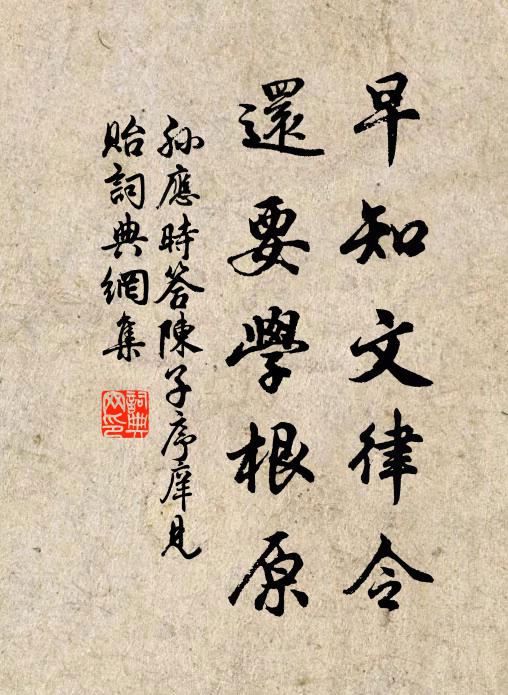 早知文律令
還要學根原
孫應時答陳子序庠見
貽詞典網集
詞典網印